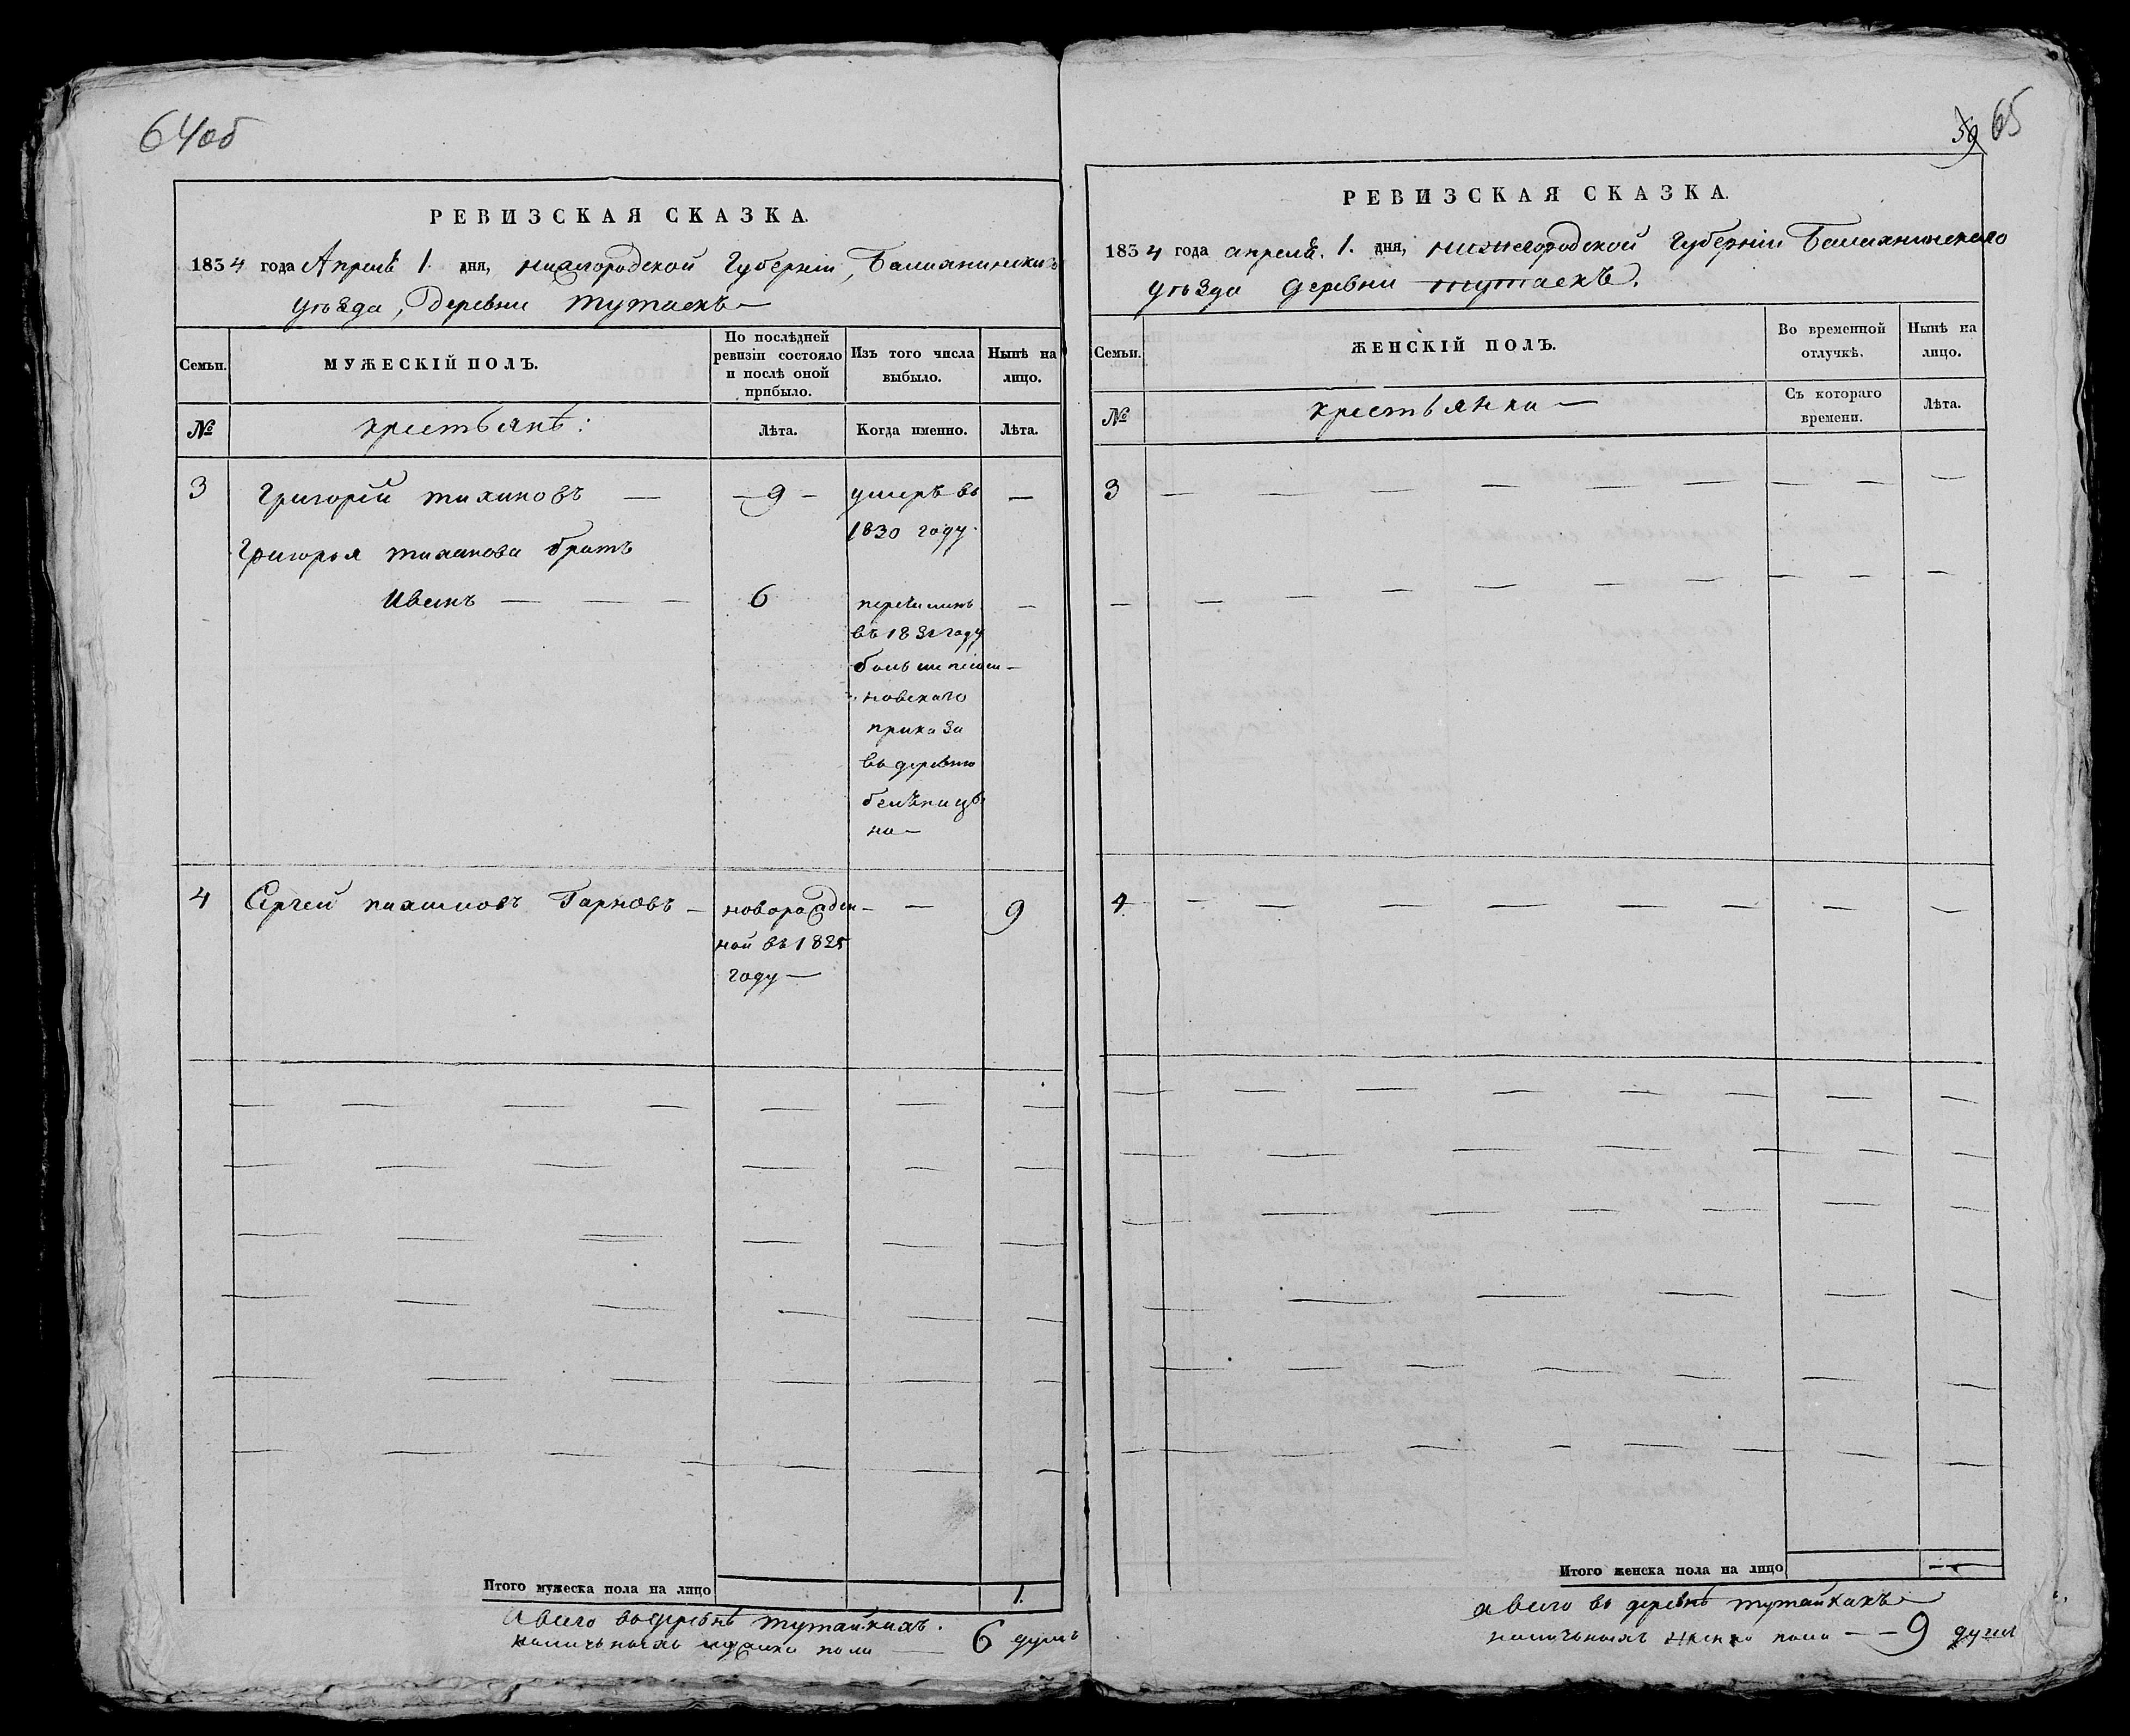 64об
РЕВИЗСКАЯ СКАЗКА.
1834 года Апреля 1. дня, нижегородской Губерніи, Балахнинскаго
уѣзда, деревни тутаекъ
Семьи.
МУЖЕСКІЙ ПОЛЪ.
По послѣдней ревизіи состояло и послѣ оной прибыло.
Изъ того числа выбыло.
Нынѣ на лицо.
№
крестьянѣ:
Лѣта.
Когда именно.
Лѣта.
3 Григорій тихановъ — 9 — умеръ въ —
1830 году.
Григорья тиханова братъ
Иванъ — — — 6 перечисленъ —
въ 183 году
больше
новскаго
приказа
въ деревню
на
4 Сергей Гарновъ — новорожден — — 9
ной въ 1825
году —
Итого мужеска пола на лицо 1.
а всего въ деревнѣ тутайкахъ.
наличныхъ мужска пола — 6 душъ
59 65
РЕВИЗСКАЯ СКАЗКА.
1834 года апреля. 1. дня, нижегородской Губерніи Балахнинскаго
уѣзда деревни тутаекъ.
Семьи.
ЖЕНСКІЙ ПОЛЪ.
Во временной отлучкѣ.
Нынѣ на лицо.
№
крестьянки —
Съ котораго времени.
Лѣта.
3 — — — — — — — —
4 — — — — — — — —
Итого женска пола на лицо —
а всего въ деревнѣ тутайкахъ
наличныхъ женска пола — — 9 душъ